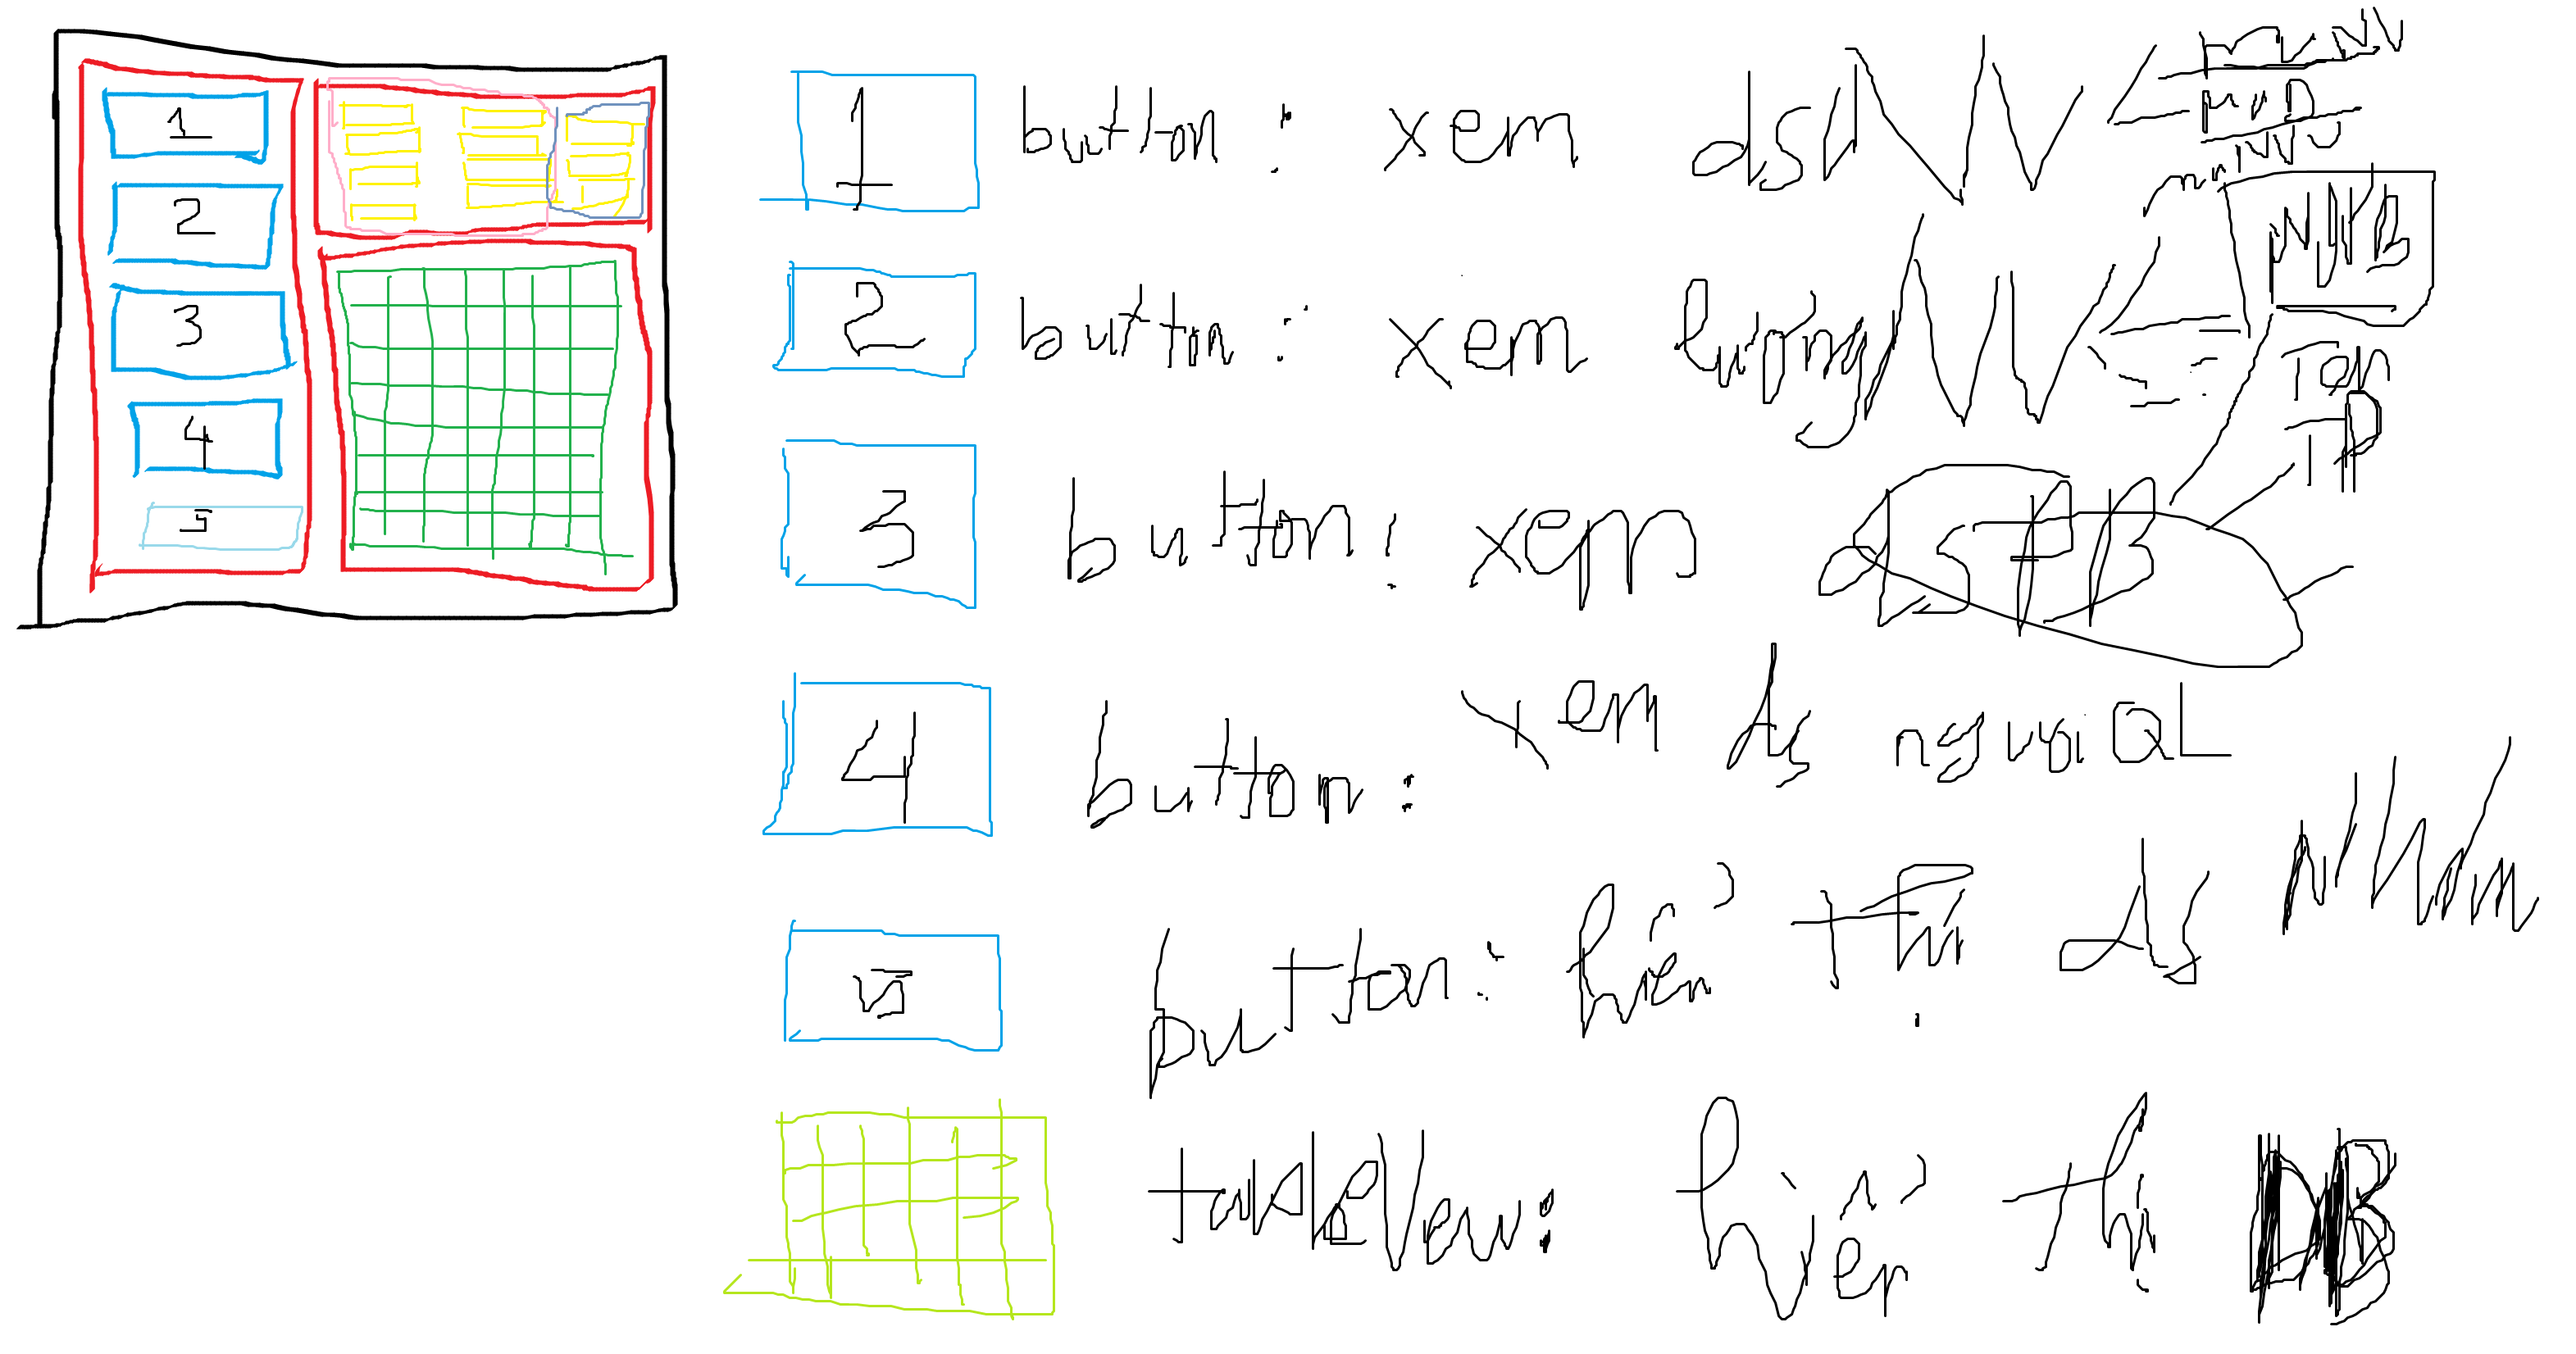 1
2
3
4
5
1 button: xem dsNV
2 button: xem lương NV
Tên
TP
3 button: xem dsPB
4 button: xem ds người QL
5 button: hiển thị ds
tableView: hiển thị DB